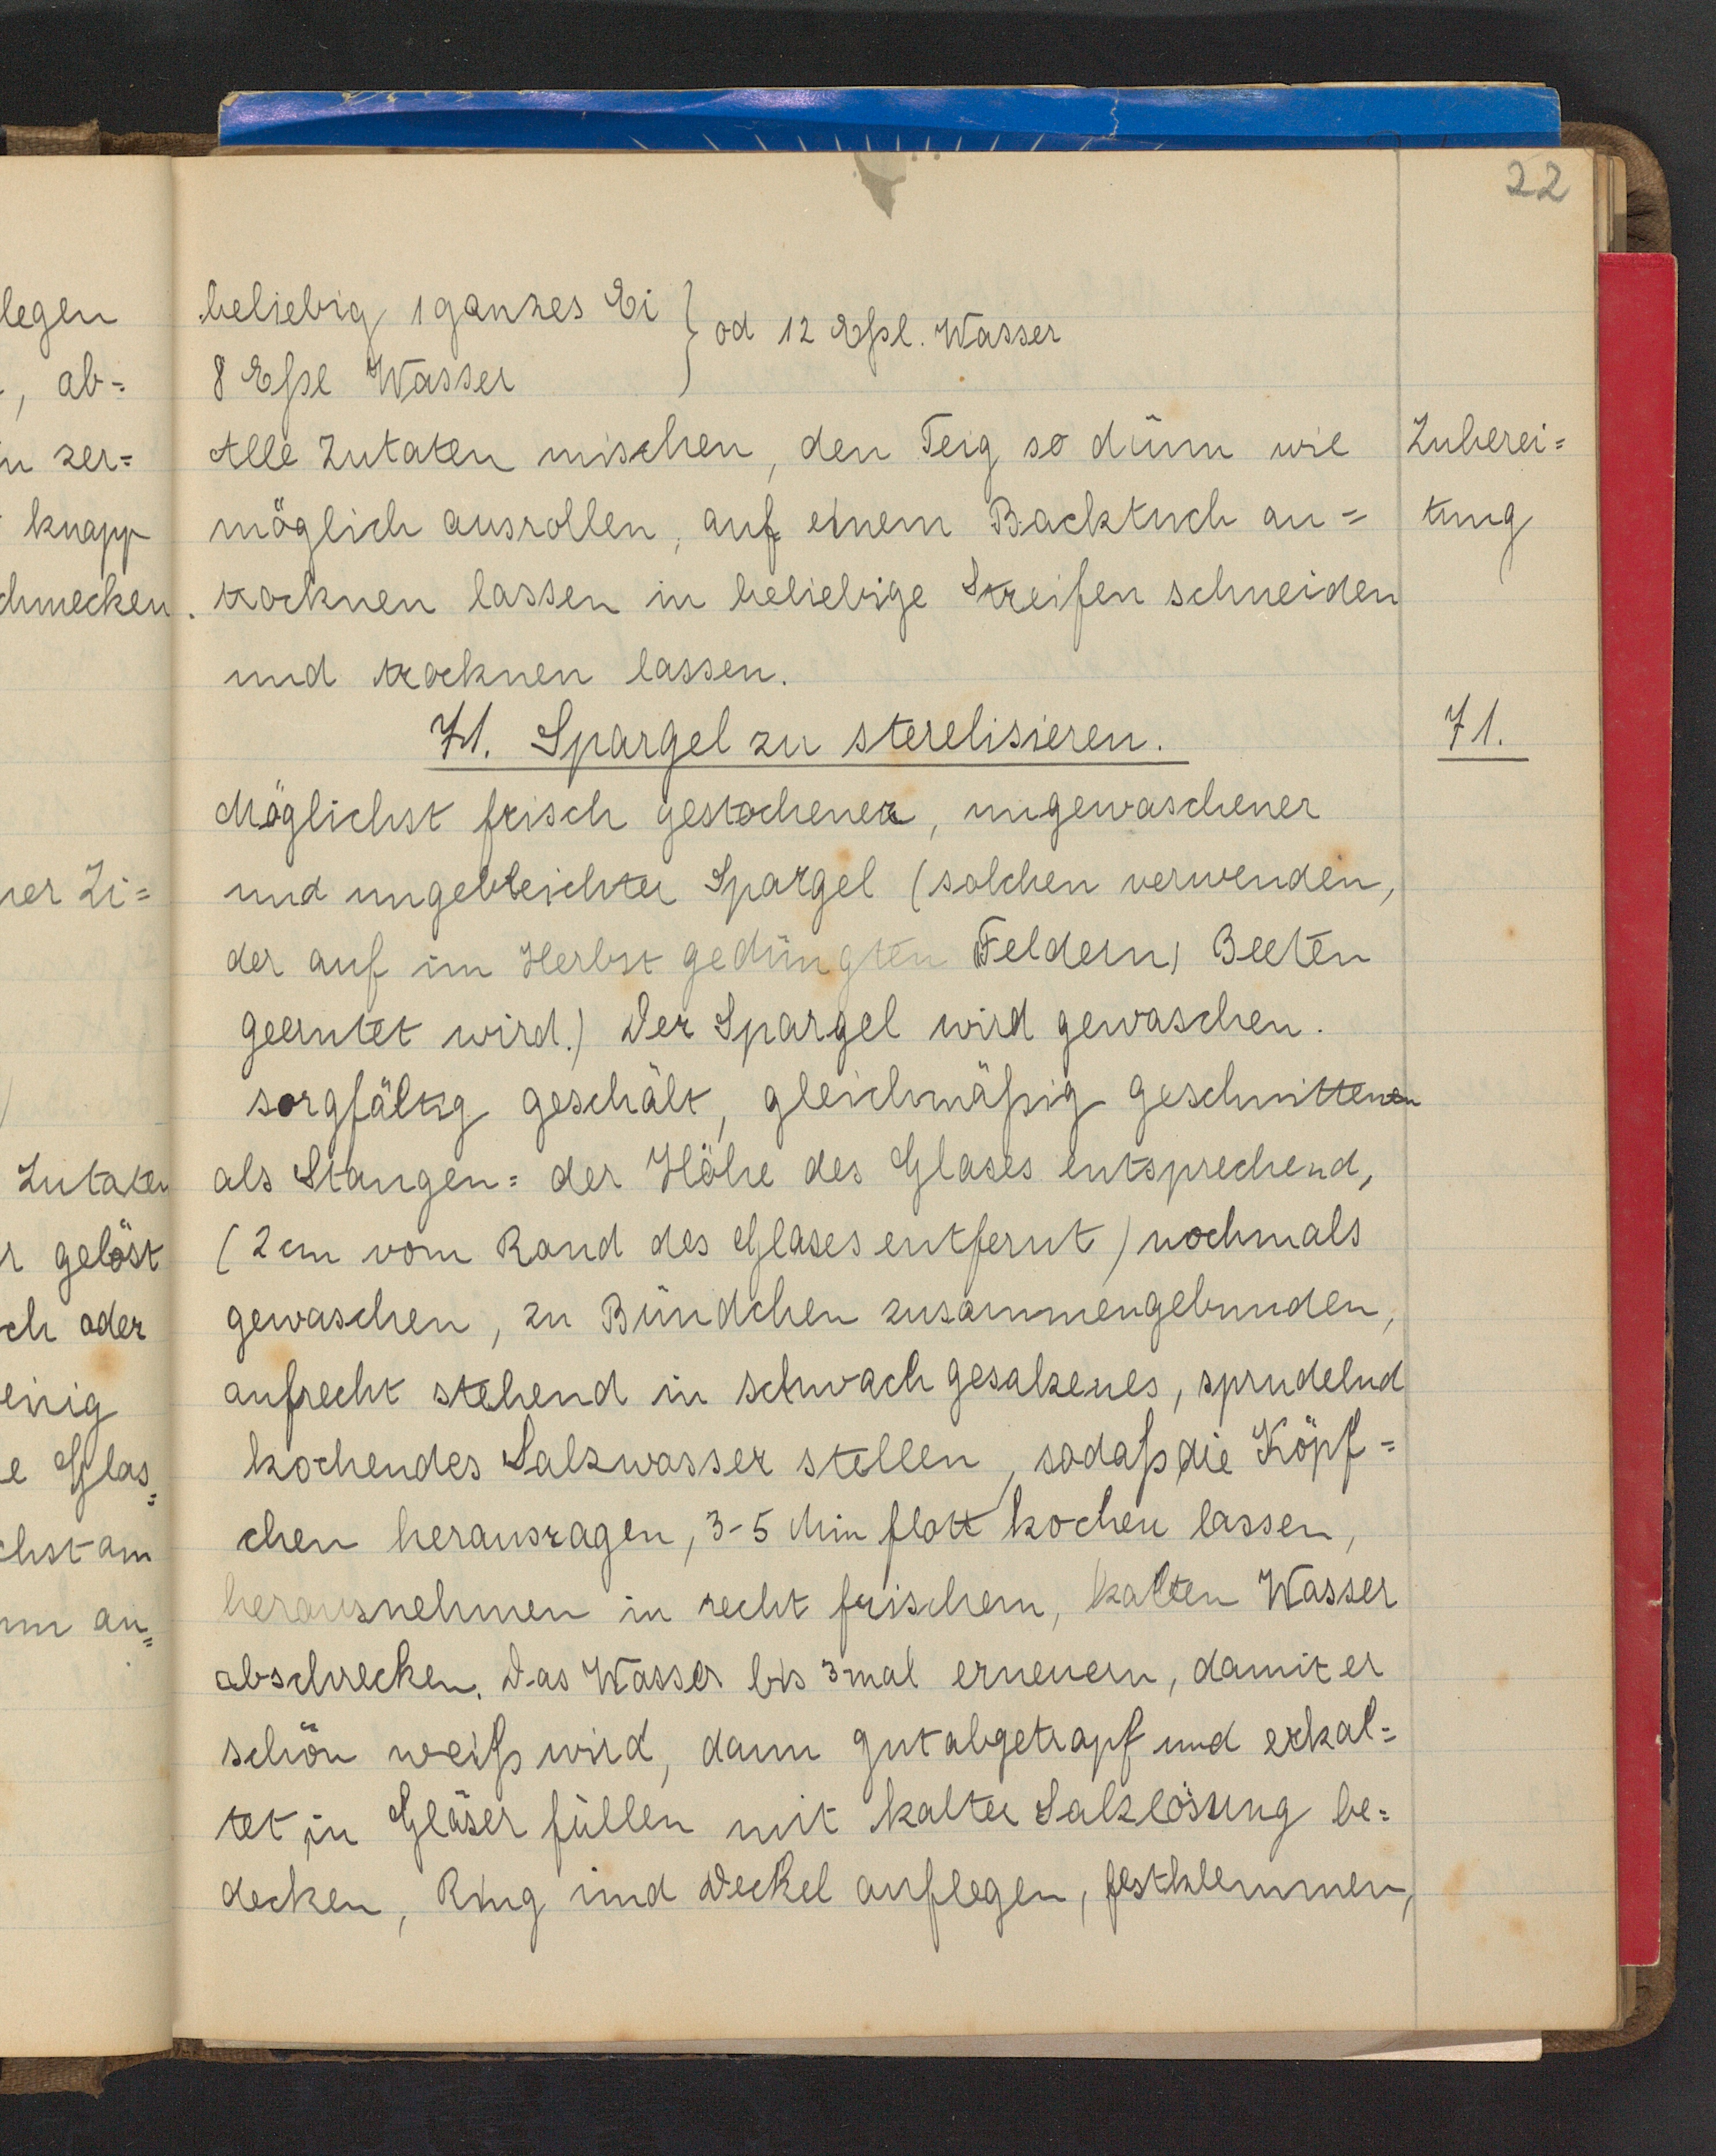 22
legen
, ab=
zer=
knapp
chmecken.
ner Zi=
Zutaten
gelöst
ch oder
enig
e Glas=
chst am
an=
beliebig 1 ganzes Ei } od 12 Eßl. Wasser
8 Eßl Wasser
Alle Zutaten mischen, den Teig so dünn wie
Zuberei=
möglich ausrollen, auf einem Backtuch an=
tung
trocknen lassen in beliebige Streifen schneiden
und trocknen lassen.
71. Spargel zu sterelisieren.
71.
Möglichst frisch gestochener, ungewaschener
und ungebleichter Spargel (solchen verwenden,
der auf im Herbst gedüngten Feldern) Beeten
geerntet wird.) Der Spargel wird gewaschen.
sorgfältig geschält, gleichmäßig geschnittenen
als Stangen= der Höhe des Glases entsprechend,
(2 cm vom Rand des Glases entfernt) nochmals
gewaschen, zu Bündchen zusammengebunden,
aufrecht stehend in schwach gesalzenes, sprudelnd
kochendes Salzwasser stellen, sodaß die Köpf=
chen herausragen, 3-5 Min flott kochen lassen,
herausnehmen in recht frischem, kalten Wasser
abschrecken. Das Wasser bis 3mal erneuern, damit er
schön weiß wird, dann gut abgetropf und erkal=
tet, in Gläser füllen mit kalter Salzlösung be=
decken, Ring und Deckel auflegen, festklemmen,